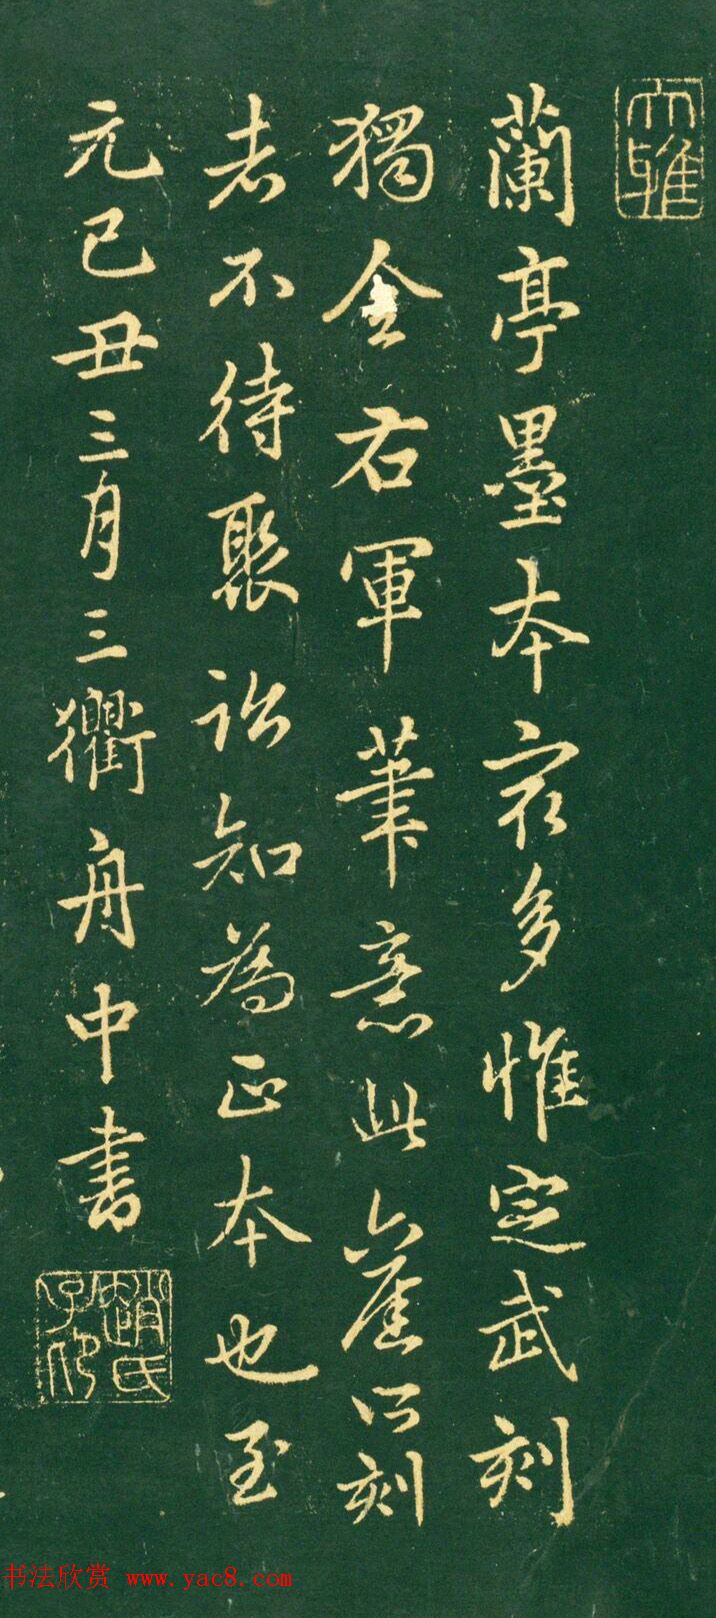 大雅
蘭亭墨本㝡多惟定武刻
獨全右軍筆意此亦舊所刻
者不待聚訟知為正本也至
元己丑三月三衢舟中書
趙氏子昂
书法欣赏 www.yac8.com